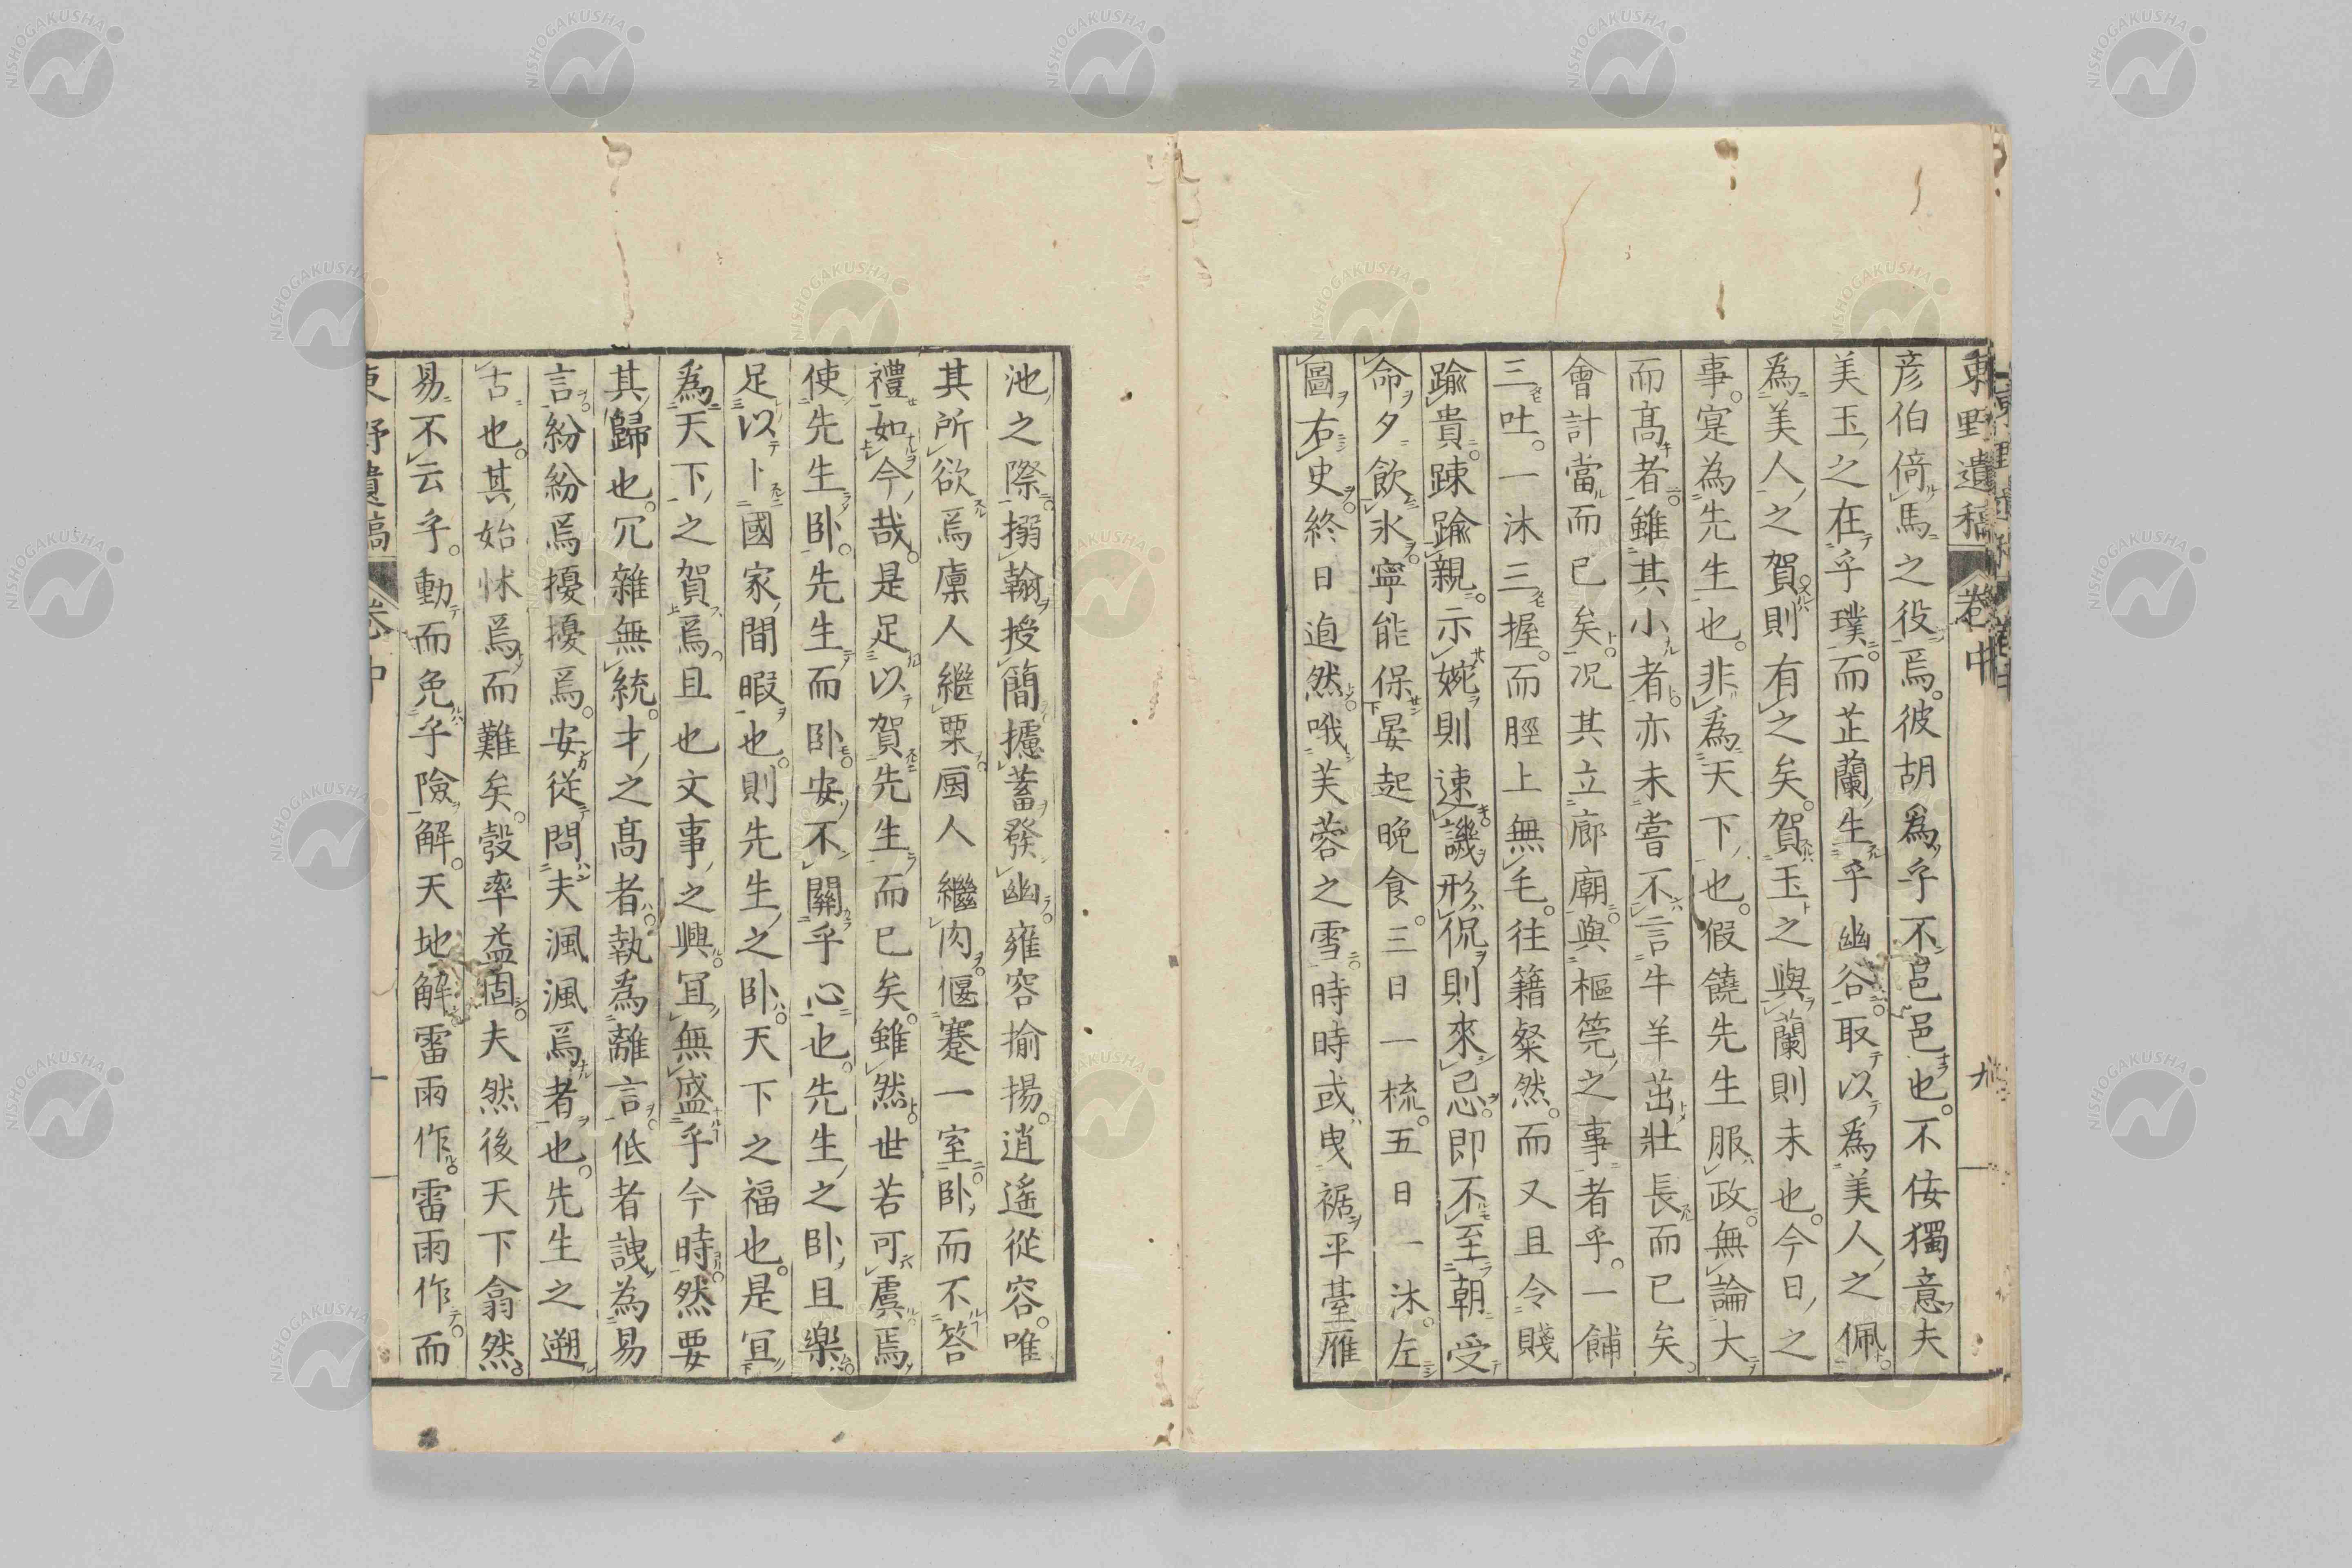 東野遺稿 卷中 九
彦伯倚馬之役焉。彼胡爲乎不邑邑也。不佞獨意夫
美玉之在乎璞。而芷蘭生乎幽谷。取以爲美人之佩。
爲美人之賀。則有之矣。賀玉之與蘭則未也。今日之
事。寔為先生也。非爲天下也。假饒先生服政。無論大
而高者。雖其小者。亦未嘗不言牛羊茁壯長而已矣。
會計當而已矣。况其立廊廟。與樞筦之事者乎。一餔
三吐。一沐三握。而脛上無毛。往籍粲然。而又且令賤
踰貴。踈踰親。示婉則速譏。形侃則來忌。即不至朝受
命夕飲氷。寧能保晏起晩食。三日一梳。五日一沐。左
圖右史。終日逌然。哦芙蓉之雪。時時或曳裾平臺雁
池之際。搦翰授簡。攄蓄發幽。雍容揄揚。逍遙從容。唯
其所欲焉。廩人繼粟。厨人繼肉。偃蹇一室。卧而不答
禮如今哉。是足以賀先生而已矣。雖然。世若可虞焉
使先生卧。先生而卧。安不關乎心也。先生之卧。且樂。
足以卜國家間暇也。則先生之卧。天下之福也。是冝
爲天下之賀焉。且也文事之興。冝無盛乎今時。然要
其歸也。冗雜無統。才之高者。執為離言。低者詍為易
言。紛紛焉擾擾焉。安從問夫渢渢焉者也。先生之遡
古也。其始怵焉而難矣。彀率益固。夫然後天下翕然。
易不云乎。動而免乎險解。天地解。雷雨作。雷雨作。而
東野遺稿 卷中 十